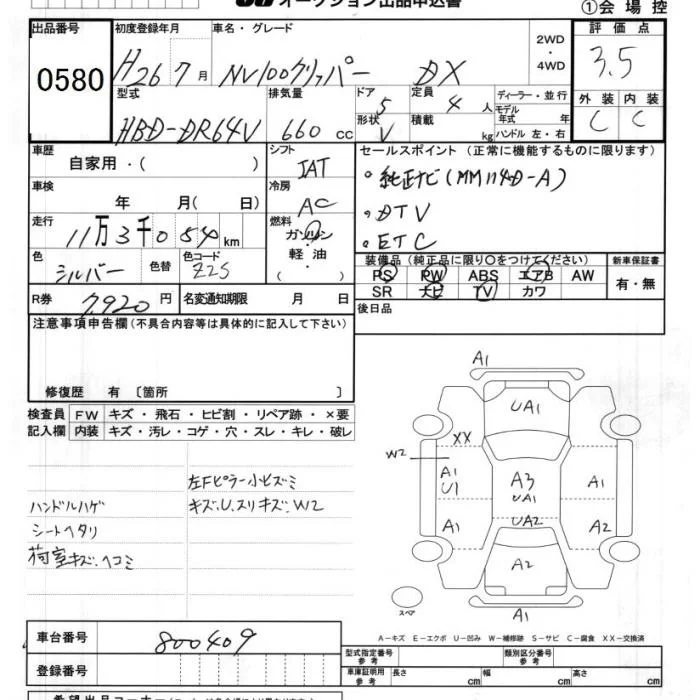 オークション出品申込書
①会場控
出品番号
0580
初度登録年月
H26 7月
車名・グレード
NV100クリッパー DX
2WD
・
4WD
評価点
3.5
型式
HBD-DR64V
排気量
660 cc
ドア
5
形状
V
定員
4人
積載
kg
ディーラー・並行
モデル
年式 年
ハンドル 左・右
外装 内装
C C
車歴
自家用・( )
シフト
IAT
セールスポイント (正常に機能するものに限ります)
・純正ナビ(MM114D-A)
・DTV
・ETC
車検
年 月( 日)
冷房
AC
走行
11万3千054km
燃料
ガソリン
軽・油
( )
色
シルバー
色替
色コード
Z2S
装備品 (純正品に限り○をつけてください)
PS PW ABS エアB AW
SR ナビ TV カワ
新車保証書
有・無
R券
7,920円
名変通知期限 月 日
後日品
注意事項申告欄(不具合内容等は具体的に記入して下さい)
修復歴 有 〔箇所 〕
検査員
記入欄
FW キズ・飛石・ヒビ割・リペア跡・×要
内装 キズ・汚レ・コゲ・穴・スレ・キレ・破レ
左Fピラー小ヒズミ
ハンドルハゲ
キズ.U.スリキズ.W2
シートヘタリ
荷室キズ.ヘコミ
A1
UA1
XX
W2
A1
U1
A3
UA1
A1
A1
UA2
A2
A2
スペア
A1
A-キズ E-エクボ U-凹み W-補修跡 S-サビ C-腐食 XX-交換済
車台番号
800409
登録番号
型式指定番号
参考
類別区分番号
参考
車庫証明用
参考
長さ cm
幅 cm
高さ cm